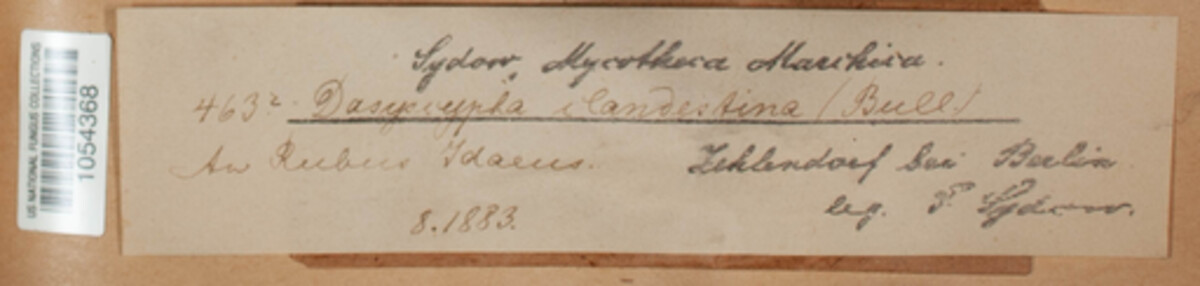 US NATIONAL FUNGUS COLLECTIONS
1054368
Sydow, Mycotheca Marchica.
463² Dasyscypha clandestina (Bull.)
An Rubus Idaeus.
Zehlendorf bei Berlin
leg. P. Sydow.
8.1883.